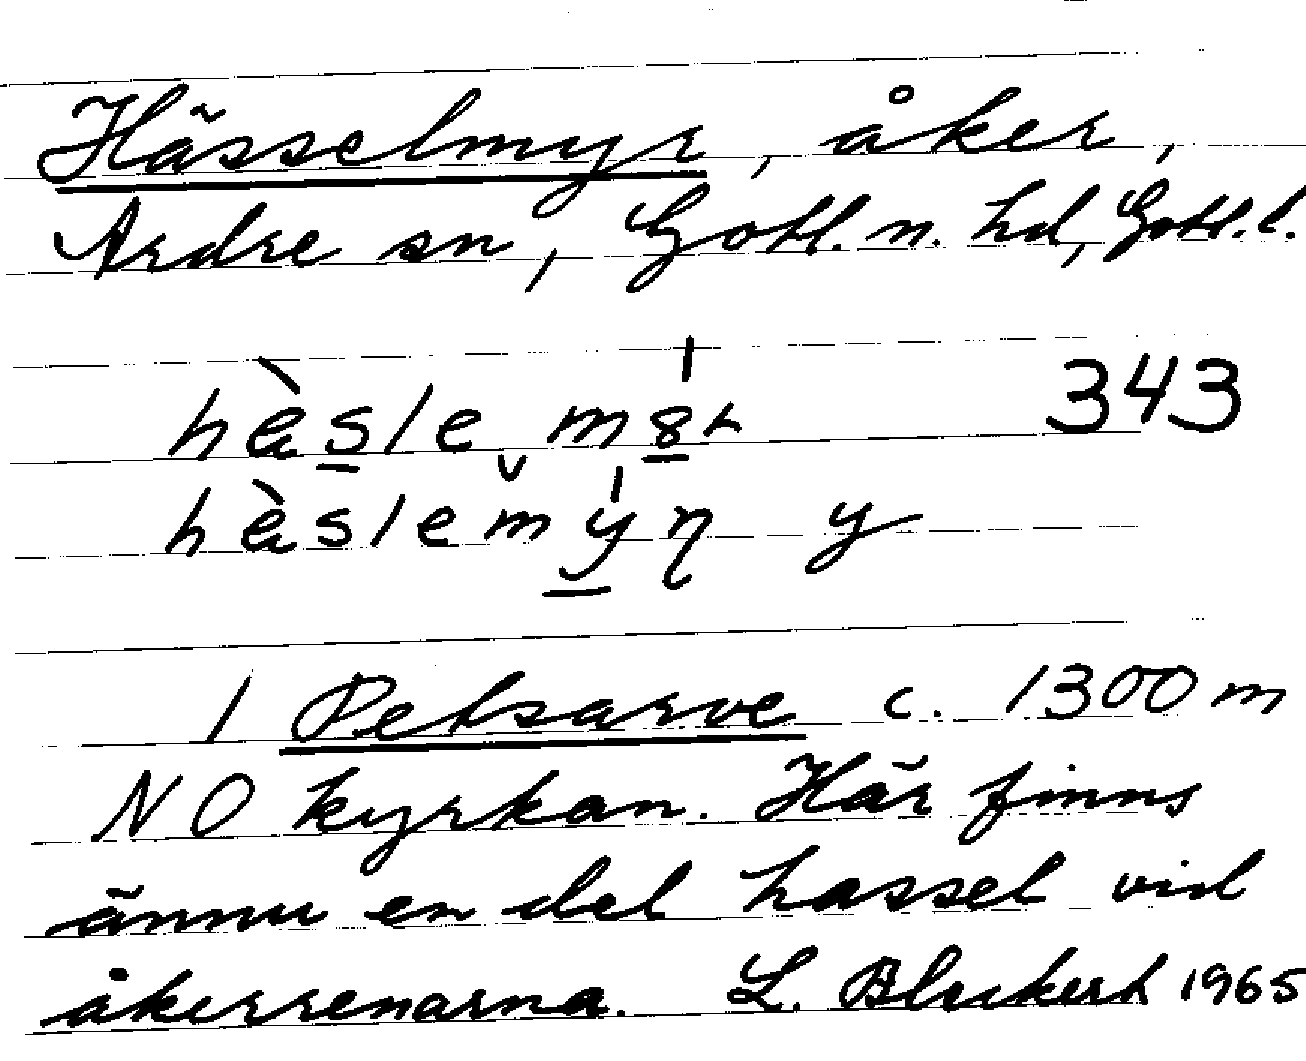 Hässelmyr, åker,
Ardre sn, Gotl. n. hd, Gotl. l.
343
1 Petsarve c. 1300 m
NO kyrkan. Här finns
ännu en del hassel vid
åkerrenarna. L. Bluckert 1965